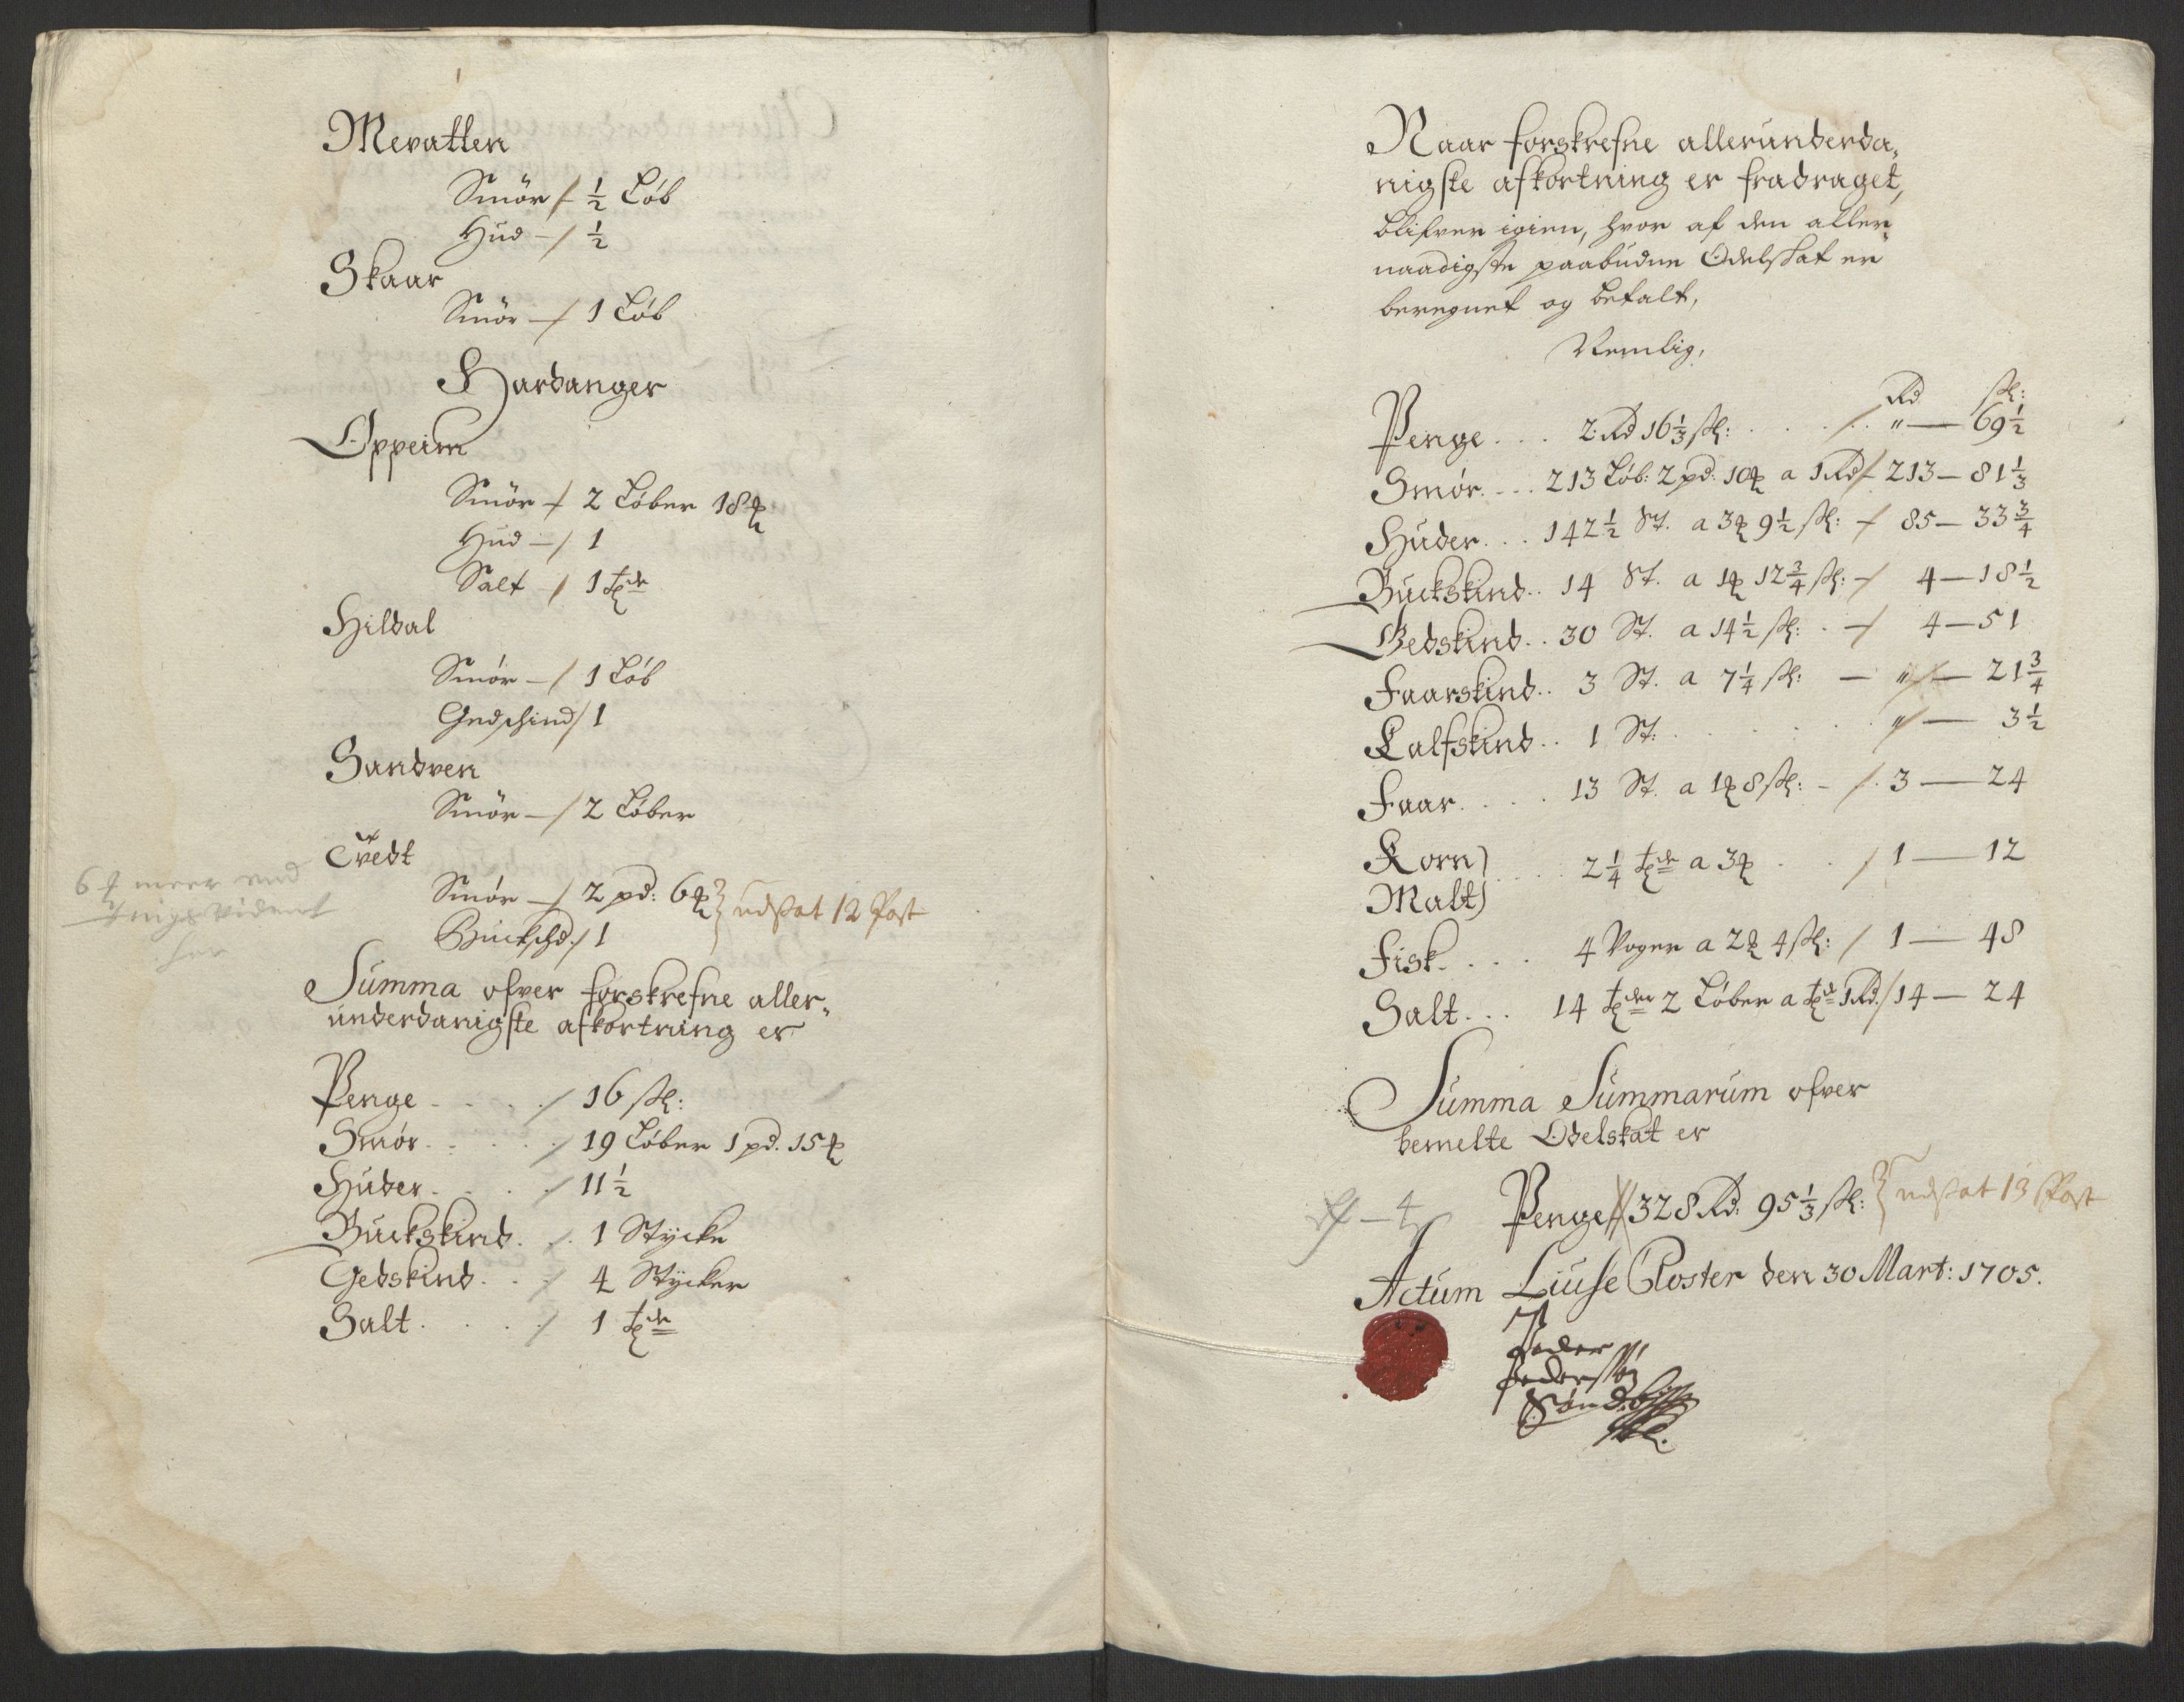 Mevatten
Smör ⁄ ½ Löb
Hud — ⁄ ½
Skaar
Smör — ⁄ 1 Löb
Hardanger
Oppeim
Smör ⁄ 2 Löber 18 ℔
Hud — ⁄ 1
Salt ⁄ 1 tde
Hildal
Smör — ⁄ 1 Löb
Gedschind ⁄ 1
Sandven
Smör — ⁄ 2 Löber
Tvedt
6 ℔ meer end
Smör — ⁄ 2 pd: 6 ℔ } udsat 12 Post
her
Buckschd: ⁄ 1
Summa ofver forskrefne aller„
underdanigste afkortning er
Penge . . . ⁄ 16 sk:
Smör . . . ⁄ 19 Löber 1 pd. 15 ℔
Huder . . . ⁄ 11 ½
Buckskind . ⁄ . 1 Stÿcke
Gedskind . . ⁄ 4 Stÿcker
Salt . . . ⁄ 1 tde
Naar forskrefne allerunderda„
nigste afkortning er fradraget,
blifver igien, hvor af den aller„
naadigste paabudne Odelskat er
beregnet og betalt,
Nemlig,
Rd sk:
Penge . . . 2 Rd 16 ⅓ sk: . . . ⁄ . „ — 69 ½
Smör . . . 213 Löb: 2 pd: 10 ℔ a 1 Rd ⁄ 213 — 81 ⅓
Huder . . . 142 ½ St. a 3 ℔ 9 ½ sk: ⁄ 85 — 33 ¾
Buckskind . . 14 St. a 1 ℔ 12 ¾ sk: ⁄ 4 — 18 ½
Gedskind . . 30 St. a 14 ½ sk: . ⁄ 4 — 51
Faarskind . . 3 St. a 7 ¼ sk: — „ ⁄ — 21 ¾
Kalfskind . . 1 St: . . . „ ⁄ — 3 ½
Faar . . . . 13 St. a 1 ℔ 8 sk: — ⁄ . 3 — 24
Korn)
. . . 2 ¼ tde a 3 ℔ . . ⁄ 1 — 12
Malt)
Fisk . . . . 4 Voger a 2 ℔ 4 sk: ⁄ 1 — 48
Salt . . . 14 tder 2 Löber a tde 1 Rd. ⁄ 14 — 24
Summa Summarum ofver
bemelte Odelskat er
Penge ⁄⁄ 328 Rd: 95 ⅓ sk: } udsat 13 Post
Actum Liuse Closter den 30 Mart: 1705.
Peder
Pedersön